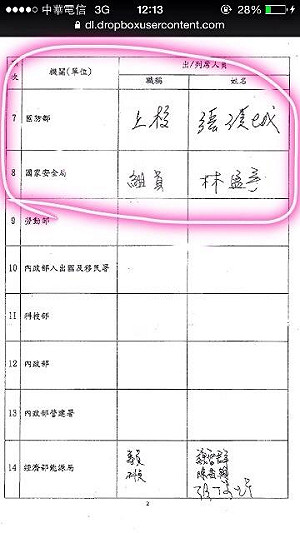 中華電信 3G 12:13 28%
dl.dropboxusercontent.com
次 機關(單位) 出/列席人員
職稱 姓名
7 國防部 上校
8 國家安全局 組員 林孟亭
9 勞動部
10 內政部入出國及移民署
11 科技部
12 內政部
13 內政部營建署
14 經濟部能源局
2